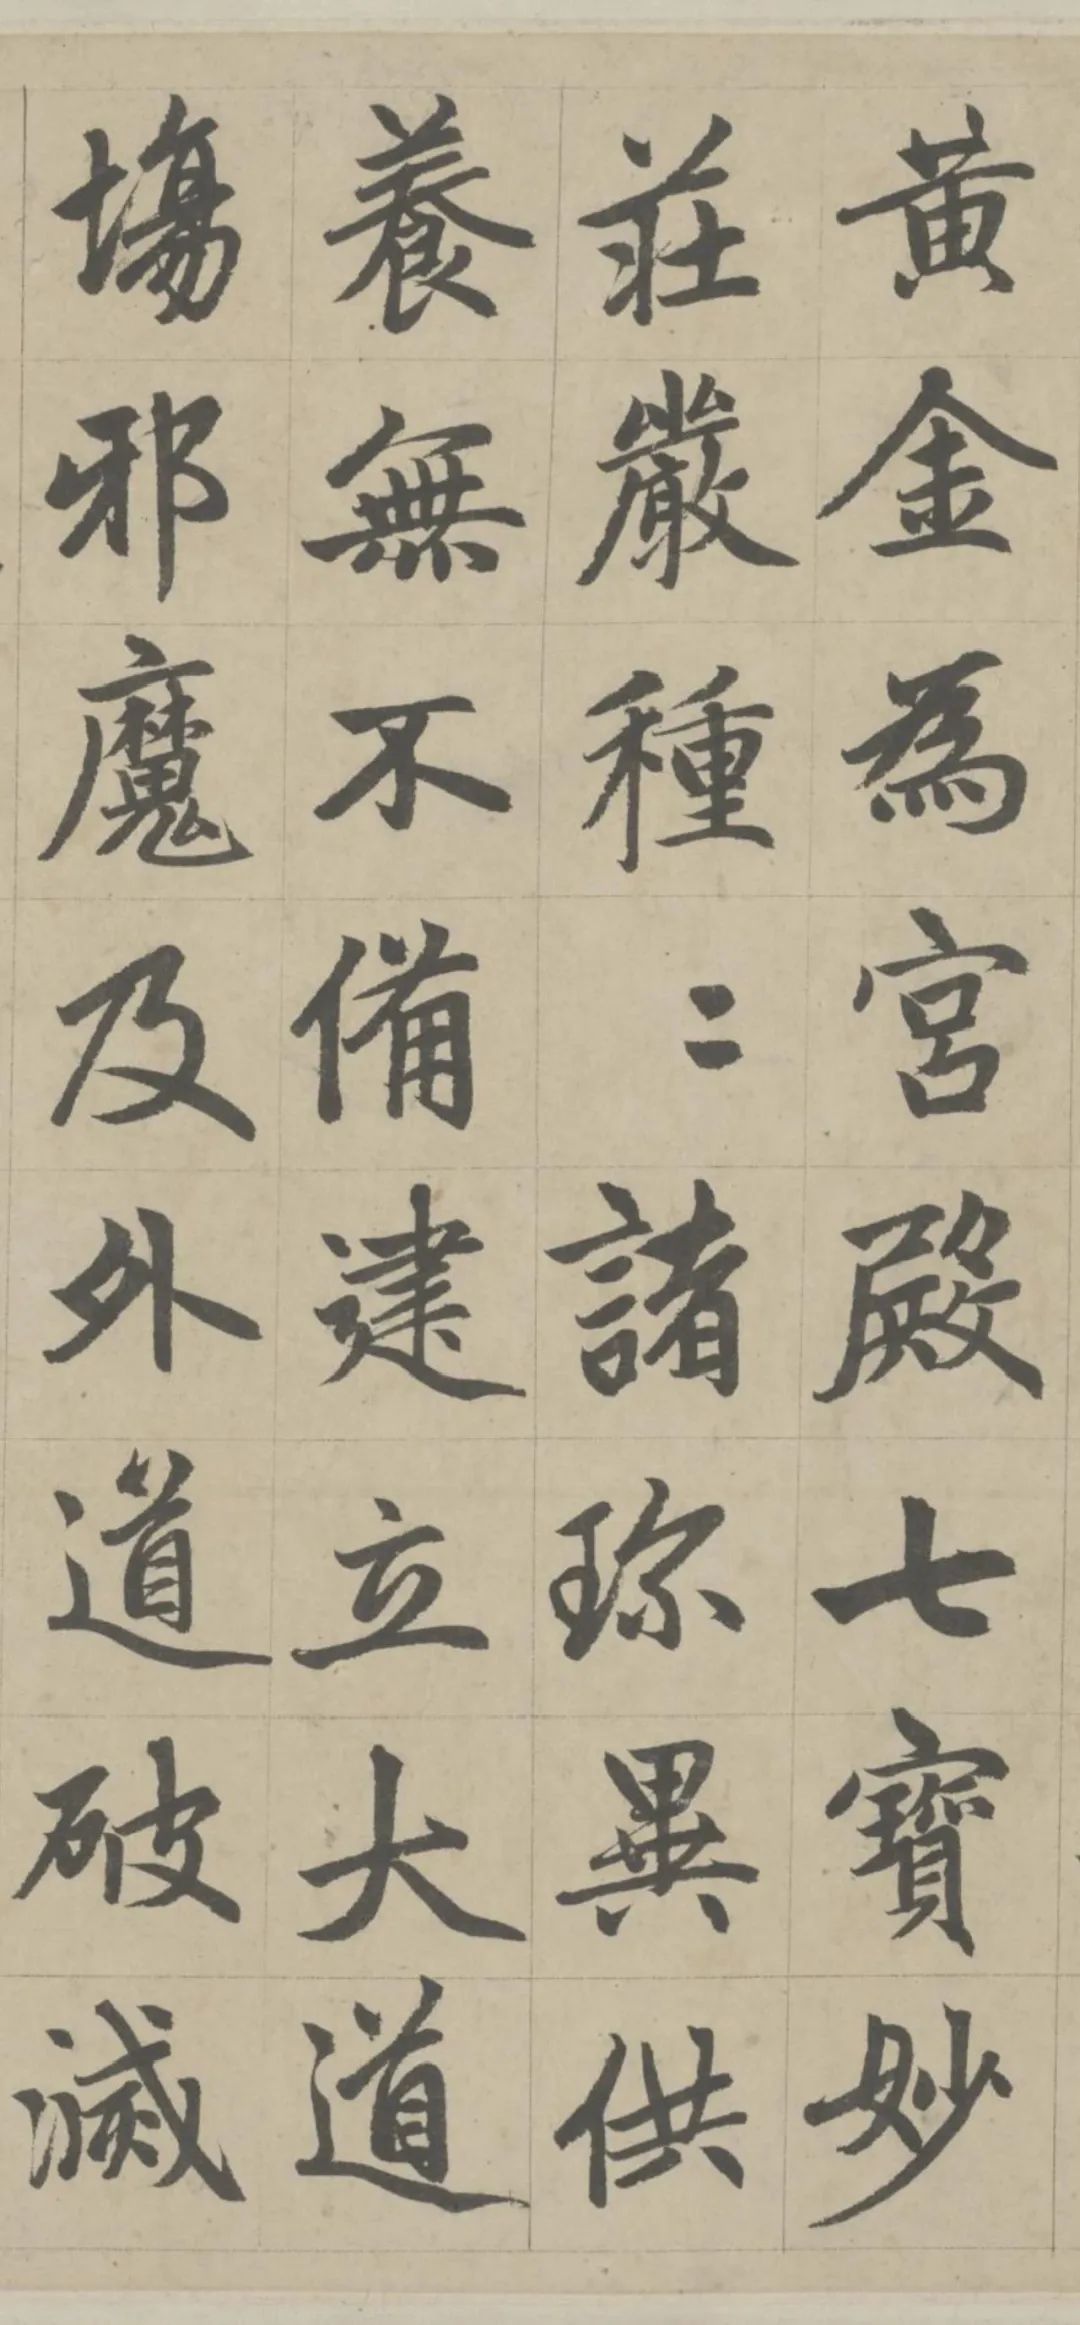 黃金為宮殿七寶妙
莊嚴種二諸珎異供
養無不備建立大道
塲邪魔及外道破滅